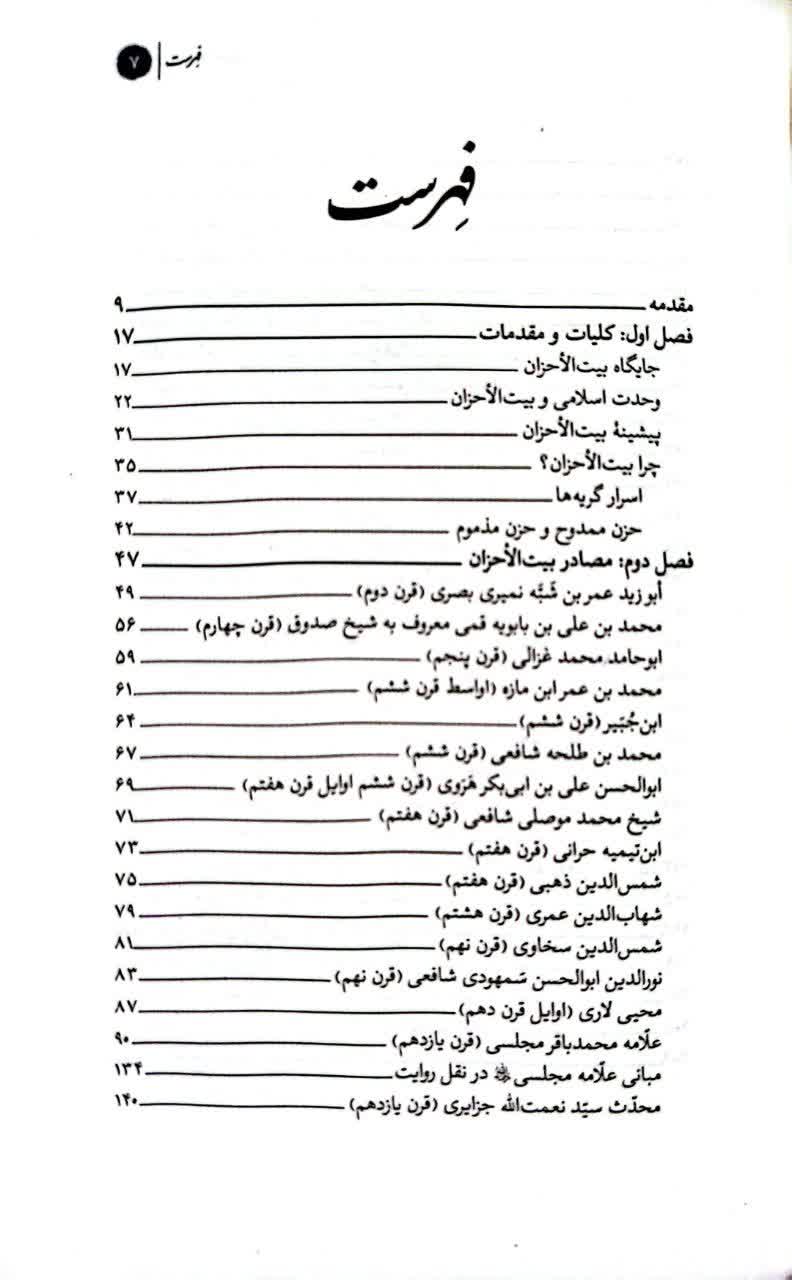 فهرست | ۷
فِهرست
مقدمه ۹
فصل اول: کلیات و مقدمات ۱۷
جایگاه بیت‌الأحزان ۱۷
وحدت اسلامی و بیت‌الأحزان ۲۲
پیشینهٔ بیت‌الأحزان ۳۱
چرا بیت‌الأحزان؟ ۳۵
اسرار گریه‌ها ۳۷
حزن ممدوح و حزن مذموم ۴۲
فصل دوم: مصادر بیت‌الأحزان ۴۷
أبو زید عمر بن شَبَّه نمیری بصری (قرن دوم) ۴۹
محمد بن علی بن بابویه قمی معروف به شیخ صدوق (قرن چهارم) ۵۶
ابوحامد محمد غزالی (قرن پنجم) ۵۹
محمد بن عمر ابن مازه (اواسط قرن ششم) ۶۱
ابن‌جُبَیر (قرن ششم) ۶۴
محمد بن طلحه شافعی (قرن ششم) ۶۷
ابوالحسن علی بن ابی‌بکر هَرَوی (قرن ششم اوایل قرن هفتم) ۶۹
شیخ محمد موصلی شافعی (قرن هفتم) ۷۱
ابن‌تیمیه حرانی (قرن هفتم) ۷۳
شمس‌الدین ذهبی (قرن هفتم) ۷۵
شهاب‌الدین عمری (قرن هشتم) ۷۹
شمس‌الدین سخاوی (قرن نهم) ۸۱
نورالدین ابوالحسن سَمهودی شافعی (قرن نهم) ۸۳
محیی لاری (اوایل قرن دهم) ۸۷
علّامه محمدباقر مجلسی (قرن یازدهم) ۹۰
مبانی علّامه مجلسی در نقل روایت ۱۳۴
محدّث سیّد نعمت‌الله جزایری (قرن یازدهم) ۱۴۰